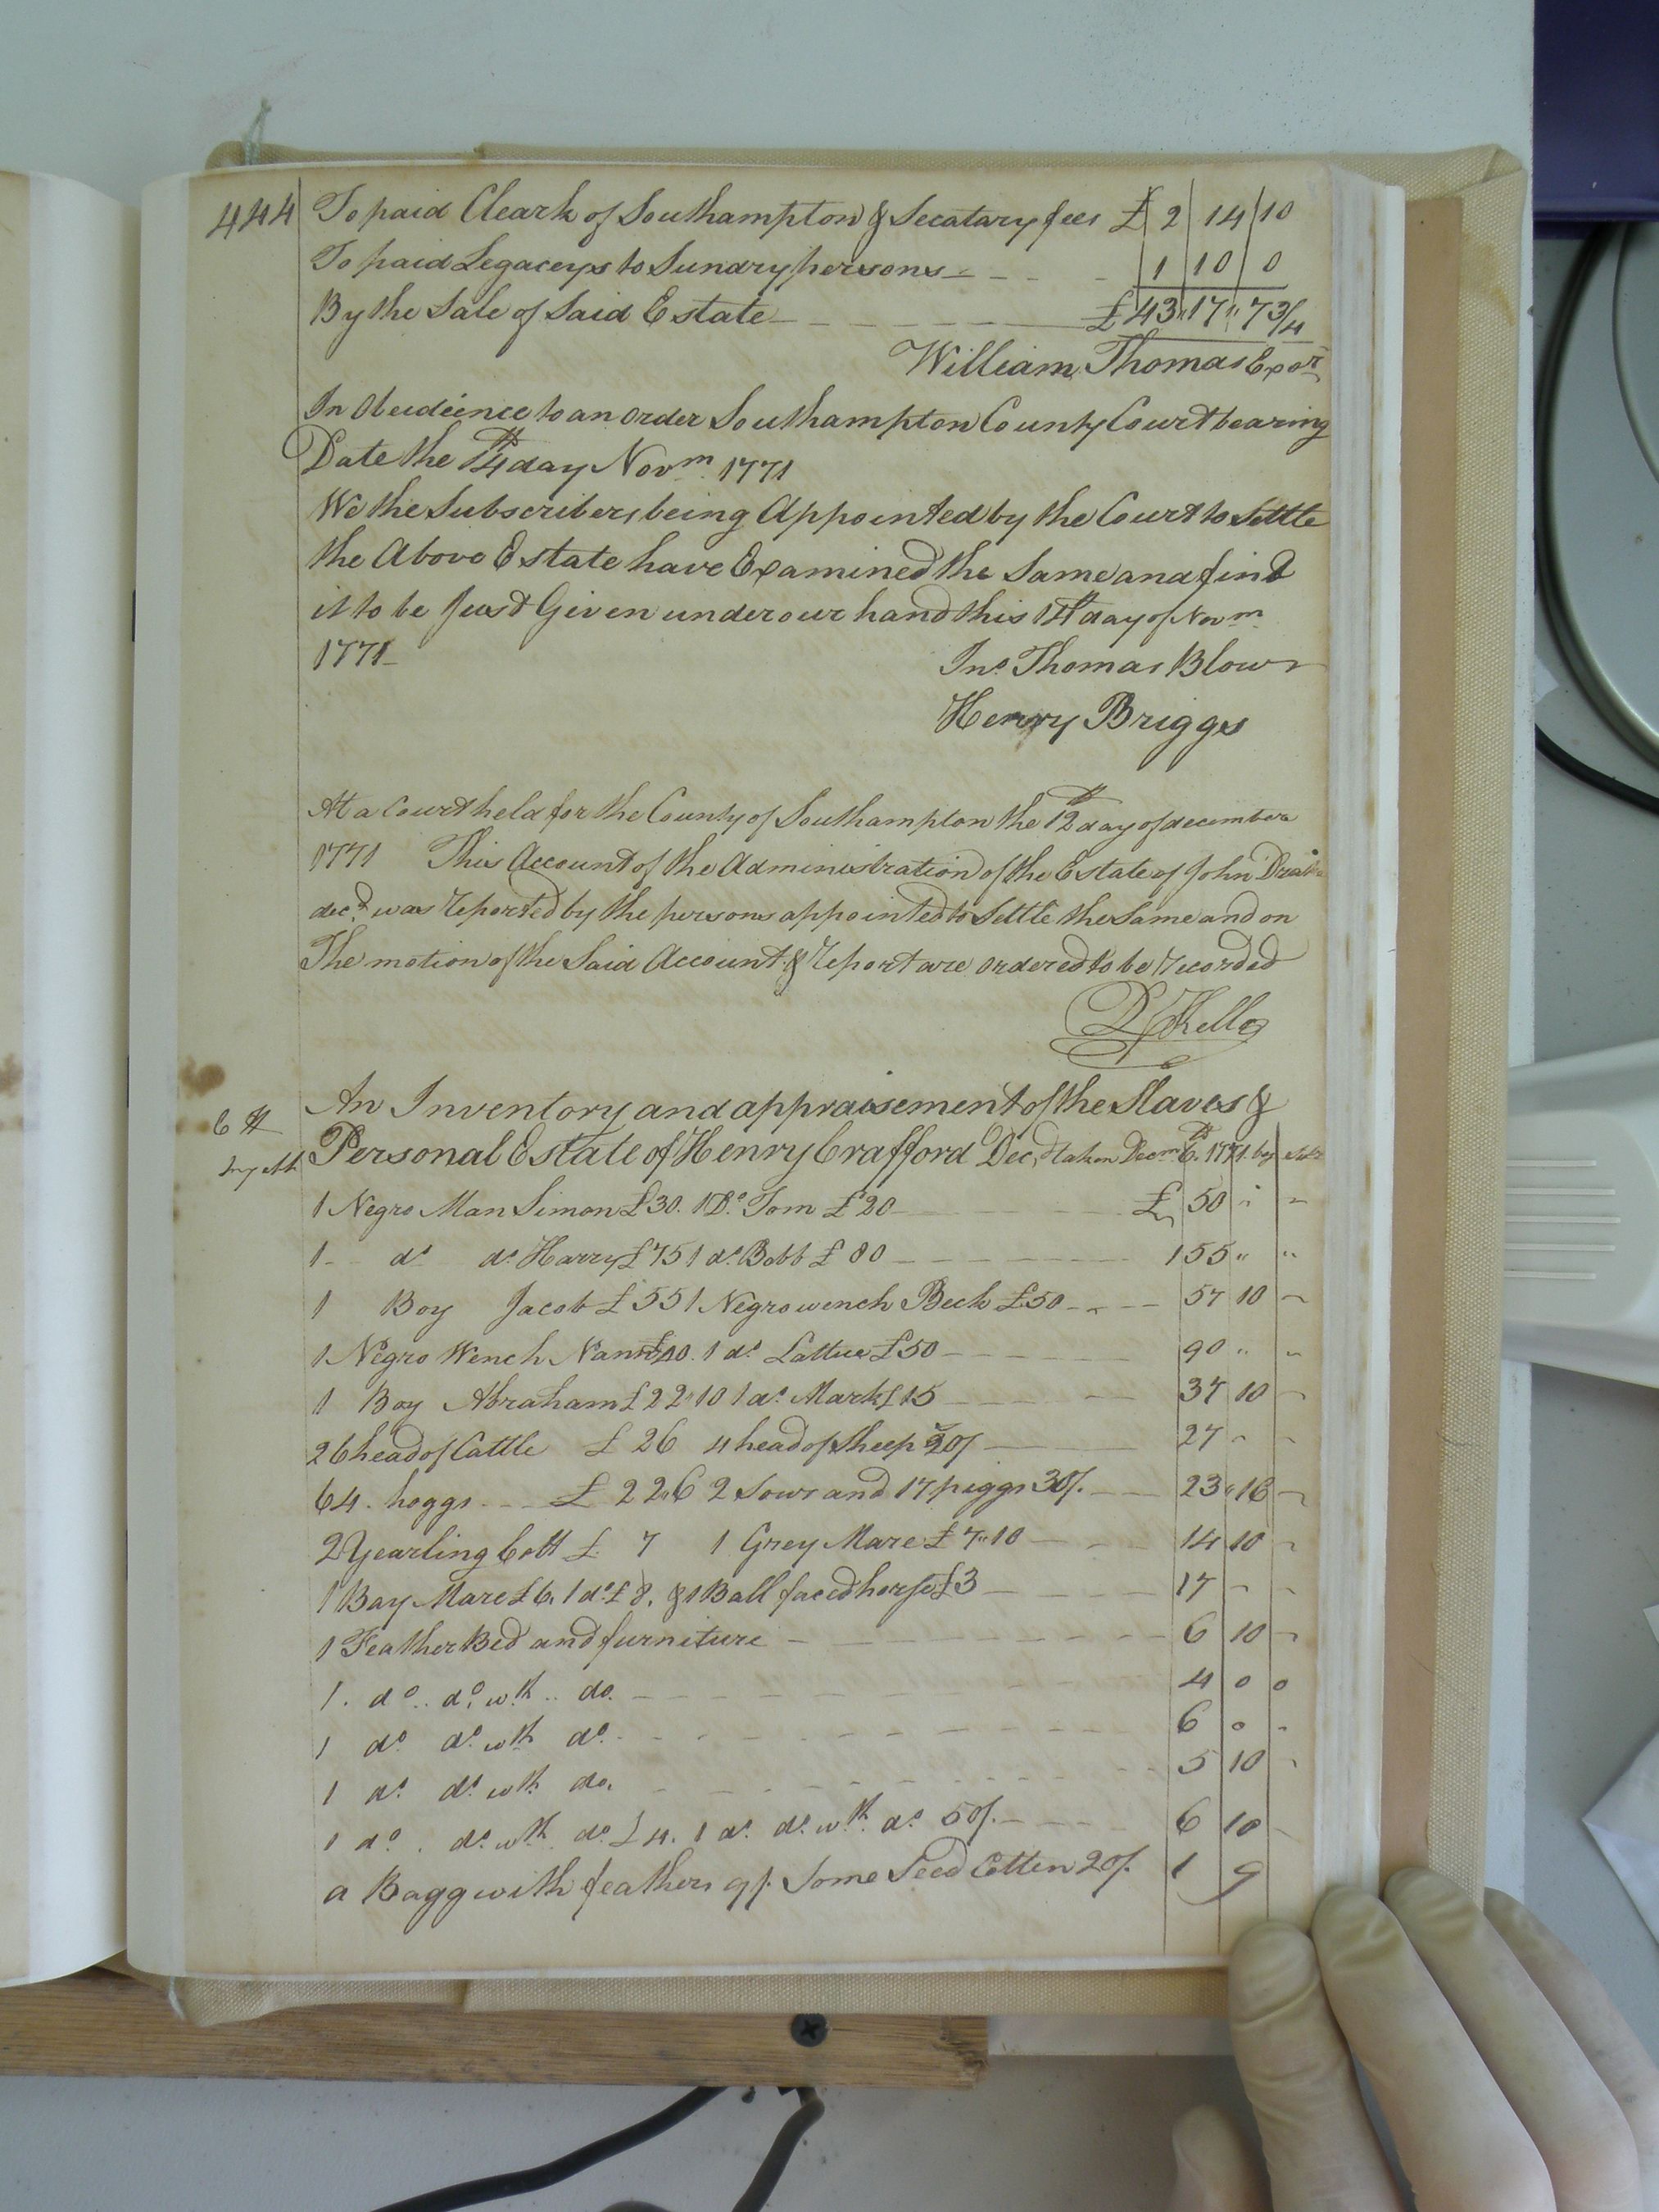 444 To paid Cleark of Southampton & Secatary fees £ 2 14 10
To paid Legaceys to Sundry persons 1 10 0
By the Sale of Said Estate £ 43 " 17 " 7 3/4
William Thomas Exor
In Obeidience to an order Southampton County Court bearing
Date the 14th day Novm. 1771
We the Subscribers, being Appointed by the Court to Settle
the Above Estate have Examined the Same and find
it to be Just Given under our hand this 14th day of Novm
1771 Jno. Thomas Blow
Henry Briggs
At a Court held for the County of Southampton the 12th day of december
1771 This Account of the Administration of the Estate of John
decd. was reported by the persons appointed to Settle the Same and on
The motion of the Said Account & report are ordered to be recorded
Kello
An Inventory and appraisement of the Slaves &
Personal Estate of Henry Crafford Decd. taken Decm. 6th. 1771 by
1 Negro Man Simon £30. 1 Do. Tom £20 £ 50 " "
1 do do. Harry £75 1 do. Bobb £80 155 " "
1 Boy Jacob £55 1 Negro wench Beck £50 57 10 -
1 Negro Wench Nann £40. 1 do Lattice £50 90 " "
1 Boy Abraham £22 " 10 1 do. Mark £15 37 10 -
26 head of Cattle £ 26 4 head of Sheep 20/ 27 - -
64. hoggs £ 22 " 6 2 Sows and 17 piggs 30/. 23 " 16 -
2 Yearling Colt £ 7 1 Grey Mare £7 " 10 14 10 -
1 Bay Mare £6. 1 do. £8. & 1 Ball faced horse £3 17 - -
1 Feather Bed and furniture 6 10 -
1. do. do. wth. do. 4 0 0
1 do do. wth do. 6 0 -
1 do. do. wth. do. 5 10 -
1 do. do. wth. do. £4. 1 do. do. wth. do. 50/. 6 10 -
a Bagg with feathers 9/. Some Seed Cotten 20/. 1 9